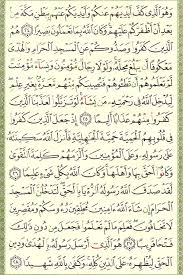 وَهُوَ ٱلَّذِى كَفَّ أَيْدِيَهُمْ عَنكُمْ وَأَيْدِيَكُمْ عَنْهُم بِبَطْنِ مَكَّةَ مِنۢ
بَعْدِ أَنْ أَظْفَرَكُمْ عَلَيْهِمْ وَكَانَ ٱللَّهُ بِمَا تَعْمَلُونَ بَصِيرًا ٢٤ هُمُ
ٱلَّذِينَ كَفَرُوا۟ وَصَدُّوكُمْ عَنِ ٱلْمَسْجِدِ ٱلْحَرَامِ وَٱلْهَدْىَ
مَعْكُوفًا أَن يَبْلُغَ مَحِلَّهُۥ وَلَوْلَا رِجَالٌ مُّؤْمِنُونَ وَنِسَآءٌ مُّؤْمِنَٰتٌ
لَّمْ تَعْلَمُوهُمْ أَن تَطَـُٔوهُمْ فَتُصِيبَكُم مِّنْهُم مَّعَرَّةٌۢ بِغَيْرِ عِلْمٍ
لِّيُدْخِلَ ٱللَّهُ فِى رَحْمَتِهِۦ مَن يَشَآءُ لَوْ تَزَيَّلُوا۟ لَعَذَّبْنَا ٱلَّذِينَ
كَفَرُوا۟ مِنْهُمْ عَذَابًا أَلِيمًا ٢٥ إِذْ جَعَلَ ٱلَّذِينَ كَفَرُوا۟
فِى قُلُوبِهِمُ ٱلْحَمِيَّةَ حَمِيَّةَ ٱلْجَٰهِلِيَّةِ فَأَنزَلَ ٱللَّهُ سَكِينَتَهُۥ
عَلَىٰ رَسُولِهِۦ وَعَلَى ٱلْمُؤْمِنِينَ وَأَلْزَمَهُمْ كَلِمَةَ ٱلتَّقْوَىٰ
وَكَانُوٓا۟ أَحَقَّ بِهَا وَأَهْلَهَا وَكَانَ ٱللَّهُ بِكُلِّ شَىْءٍ عَلِيمًا ٢٦
لَّقَدْ صَدَقَ ٱللَّهُ رَسُولَهُ ٱلرُّءْيَا بِٱلْحَقِّ لَتَدْخُلُنَّ ٱلْمَسْجِدَ
ٱلْحَرَامَ إِن شَآءَ ٱللَّهُ ءَامِنِينَ مُحَلِّقِينَ رُءُوسَكُمْ وَمُقَصِّرِينَ
لَا تَخَافُونَ فَعَلِمَ مَا لَمْ تَعْلَمُوا۟ فَجَعَلَ مِن دُونِ ذَٰلِكَ
فَتْحًا قَرِيبًا ٢٧ هُوَ ٱلَّذِىٓ أَرْسَلَ رَسُولَهُۥ بِٱلْهُدَىٰ وَدِينِ
ٱلْحَقِّ لِيُظْهِرَهُۥ عَلَى ٱلدِّينِ كُلِّهِۦ وَكَفَىٰ بِٱللَّهِ شَهِيدًا ٢٨